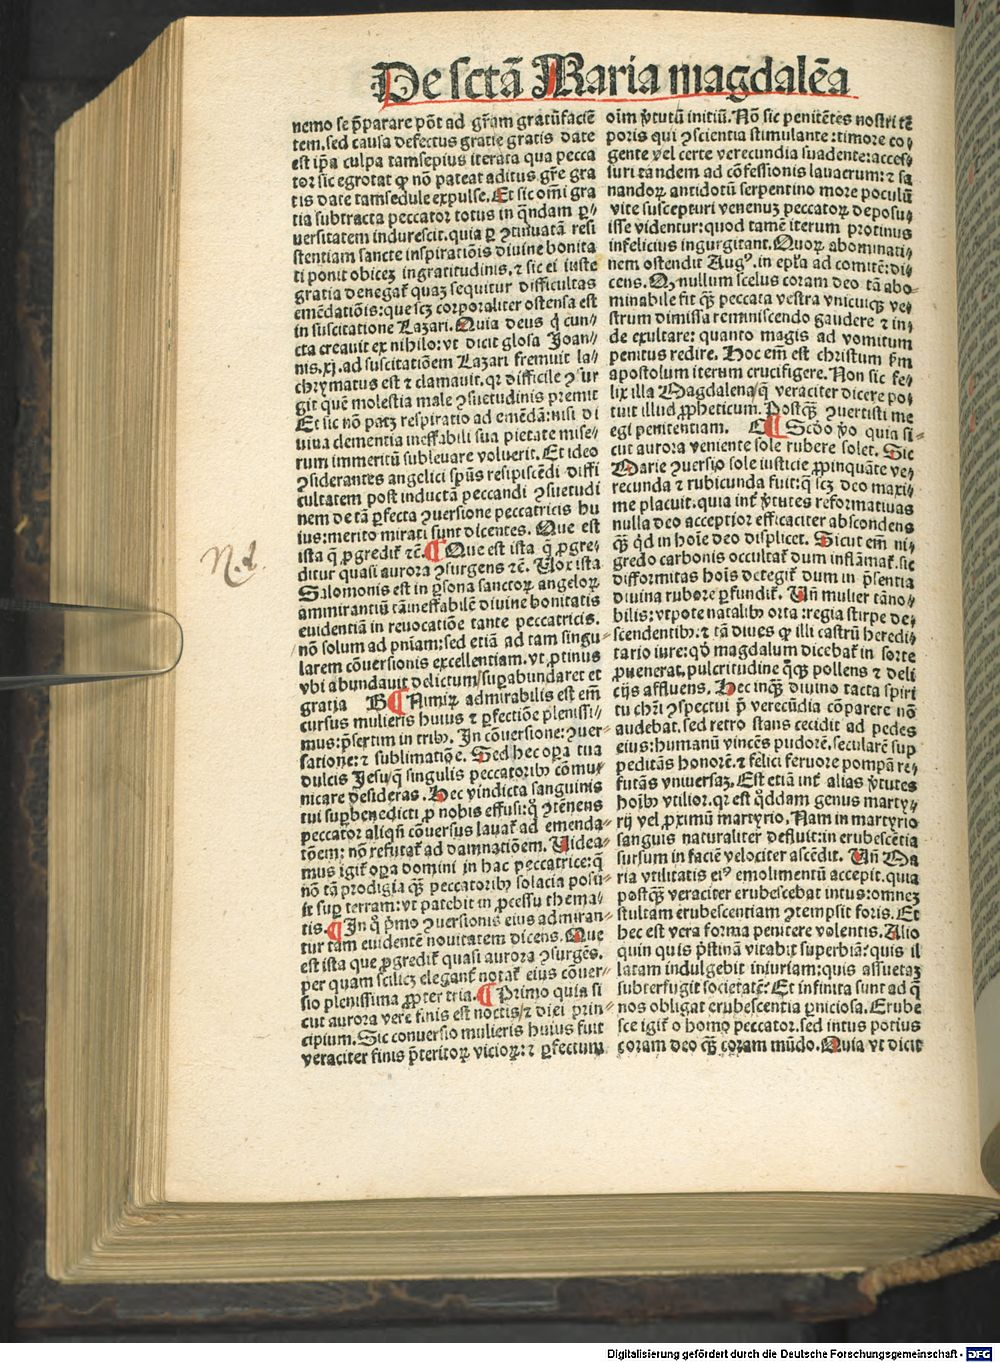 De sctā Maria magdalēa
nemo se p̄parare pōt ad gr̄am gratū faciē
tem, sed causa defectus gratie gratis date
est ip̄a culpa tam sepius iterata qua pecca
tor sic egrotat ꝙ nō pateat aditus gr̄e gra
tis date tam sedule expulse. Et sic om̄i gra
tia subtracta peccator totus in q̄ndam ꝑ//
uersitatem indurescit. quia ꝑ ꝯtinuatā resi
stentiam sancte inspiratiōis diuine bonita
ti ponit obicez ingratitudinis. ⁊ sic ei iuste
gratia denegat̄ quaz sequitur difficultas
emēdatiōis: que scz corporaliter ostensa est
in suscitatione Lazari. Quia deus q̄ cun//
cta creauit ex nihilo: vt dicit glosa Joan//
nis. xj. ad suscitatiōem Lazari fremuit la//
chrymatus est ⁊ clamauit. qr difficile ꝯsur
git quē molestia male ꝯsuetudinis premit
Et sic nō patz respiratio ad emēdā: nisi di
uina clementia ineffabili sua pietate mise//
rum immeritū subleuare voluerit. Et ideo
ꝯsiderantes angelici sp̄us resipiscēdi diffi
cultatem post inductā peccandi ꝯsuetudi
nem de tā ꝑfecta ꝯuersione peccatricis hu
ius: merito mirati sunt dicentes. Que est
ista q̄ ꝓgredit̄ ⁊c̄. ¶ Que est ista q̄ ꝓgre//
ditur quasi aurora ꝯsurgens ⁊c̄. Vox ista
N.d.
Salomonis est in ꝑsona sanctoꝝ angeloꝝ
ammirantiū tā ineffabilē diuine bonitatis
euidentiā in reuocatiōe tante peccatricis.
nō solum ad pn̄iam: sed etiā ad tam singu//
larem cōuersionis excellentiam. vt ꝓtinus
vbi abundauit delictum/ suꝑabundaret et
gratia ¶ Nimiꝝ admirabilis est em̄
cursus mulieris huius ⁊ ꝑfectiōe plenissi//
mus: p̄sertim in tribꝰ. In cōuersione: ꝯuer//
satione: ⁊ sublimatiōe. Sed hec oꝑa tua
dulcis Jesu/ q̄ singulis peccatoribꝰ cōmu//
nicare desideras. Hec vindicta sanguinis
tui suꝑbenedicti ꝓ nobis effusi: q̄ ꝯtēnens
peccator aliqn̄ cōuersus lauat̄ ad emenda//
tōem: nō refutat̄ ad damnatiōem. Videa//
mus igit̄ oꝑa domini in hac peccatrice: q̄
nō tā prodigia qꝫ peccatoribꝰ solacia posu//
it suꝑ terram: vt patebit in ꝓcessu thema//
tis. ¶ In q̊ p̄mo ꝯuersionis eius admiran//
tur tam euidentē nouitatem dicens. Que
est ista que ꝓgredit̄ quasi aurora ꝯsurgēs.
per quam scilicz elegant̄ notat̄ eius cōuer//
sio plenissima ꝓpter tria. ¶ Primo quia si
cut aurora vere finis est noctis/ ⁊ diei prin//
cipium. Sic conuersio mulieris huius fuit
veraciter finis p̄teritoꝝ vicioꝝ: ⁊ ꝑfectum
oīm v̄tutū initiū. Nō sic penitētes nostri tē
poris qui ꝯscientia stimulante: timore co//
gente vel certe verecundia suadente: acces//
suri tandem ad cōfessionis lauacrum: ⁊ sa
nandoꝝ antidotū serpentino more poculū
vite suscepturi venenuz peccatoꝝ deposu//
isse videntur: quod tamē iterum protinus
infelicius ingurgitant. Quoꝝ abominati//
nem ostendit Augꝰ. in epl̄a ad comitē: di//
cens. Qꝫ nullum scelus coram deo tā abo//
minabile fit qꝫ peccata vestra vnicuiqꝫ ve//
strum dimissa reminiscendo gaudere ⁊ in//
de exultare: quanto magis ad vomitum
penitus redire. Hoc em̄ est christum ẜm
apostolum iterum crucifigere. Non sic fe//
lix illa Magdalena/ q̄ veraciter dicere po//
tuit illud ꝓpheticum. Postqꝫ ꝯuertisti me
egi penitentiam. ¶ Scd̄o v̄o quia si//
cut aurora veniente sole rubere solet. Sic
Marie ꝯuersio sole iusticie ꝓpinquāte ve//
recunda ⁊ rubicunda fuit: q̄ scz deo maxi//
me placuit. quia int̄ v̄tutes reformatiuas
nulla deo acceptior efficaciter abscondens
qꝫ qd̄ in hoīe deo displicet. Sicut em̄ ni//
gredo carbonis occultat̄ dum inflāmat̄. sic
difformitas hoīs detegit̄ dum in p̄sentia
diuina rubore ꝑfundit̄. Vn̄ mulier tā no//
bilis: vtpote natalibꝰ orta: regia stirpe de//
scendentibꝰ: ⁊ tā diues ꝙ illi castrū heredi//
tario iure: qd̄ magdalum dicebat̄ in sorte
ꝓuenerat, pulcritudine qꝫqꝫ pollens ⁊ deli
cijs affluens. Hec inqꝫ diuino tacta spiri
tu chr̄i ꝯspectui p̄ verecūdia cōparere nō
audebat. sed retro stans cecidit ad pedes
eius: humanū vincēs pudorē. secularē sup
peditās honorē. ⁊ felici feruore pompā re//
futās vniuersaz. Est etiā int̄ alias v̄tutes
hoībꝰ vtilior. qr est q̄ddam genus marty//
rij vel ꝓximū martyrio. Nam in martyrio
sanguis naturaliter defluit: in erubescētia
sursum in faciē velociter ascēdit. Vn̄ Ma
ria vtilitatis eiꝰ emolimentū accepit. quia
postqꝫ veraciter erubescebat intus: omnez
stultam erubescentiam ꝯtempsit foris. Et
hec est vera forma penitere volentis. Alio
quin quis p̄stinā vitabit̄ superbiā: quis il
latam indulgebit iniuriam: quis assuetaz
subterfugit societatē: Et infinita sunt ad q̄
nos obligat erubescentia ꝑniciosa. Erube
sce igit̄ o homo peccator. sed intus potius
coram deo qꝫ coram mūdo. Quia vt dicit
Digitalisierung gefördert durch die Deutsche Forschungsgemeinschaft - DFG